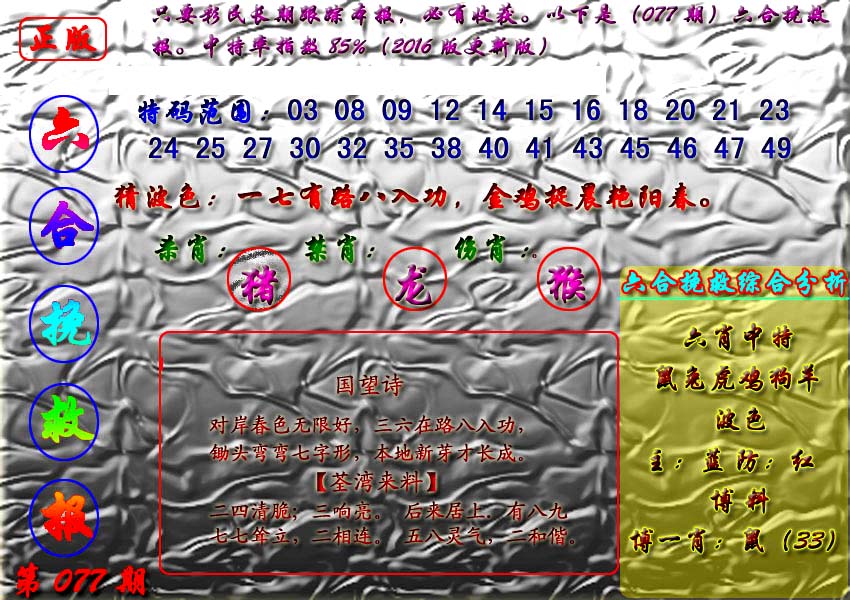 正版
只要彩民长期跟踪本报，必有收获。以下是（077期）六合挽救
报。中特率指数85%（2016版更新版）
六合挽救报
第077期
特码范围：03 08 09 12 14 15 16 18 20 21 23
24 25 27 30 32 35 38 40 41 43 45 46 47 49
猜波色：一七有路八入功，金鸡捉晨艳阳春。
杀肖：猪 禁肖：龙 伤肖：猴
国望诗
对岸春色无限好，三六在路八入功，
锄头弯弯七字形，本地新芽才长成。
【荃湾来料】
二四清脆；三响亮。 后来居上．有八九
七七耸立，二相连。 五八灵气，二和偕。
六合挽救综合分析
六肖中特
鼠兔虎鸡狗羊
波色
主：蓝防：红
博料
博一肖：鼠（33）